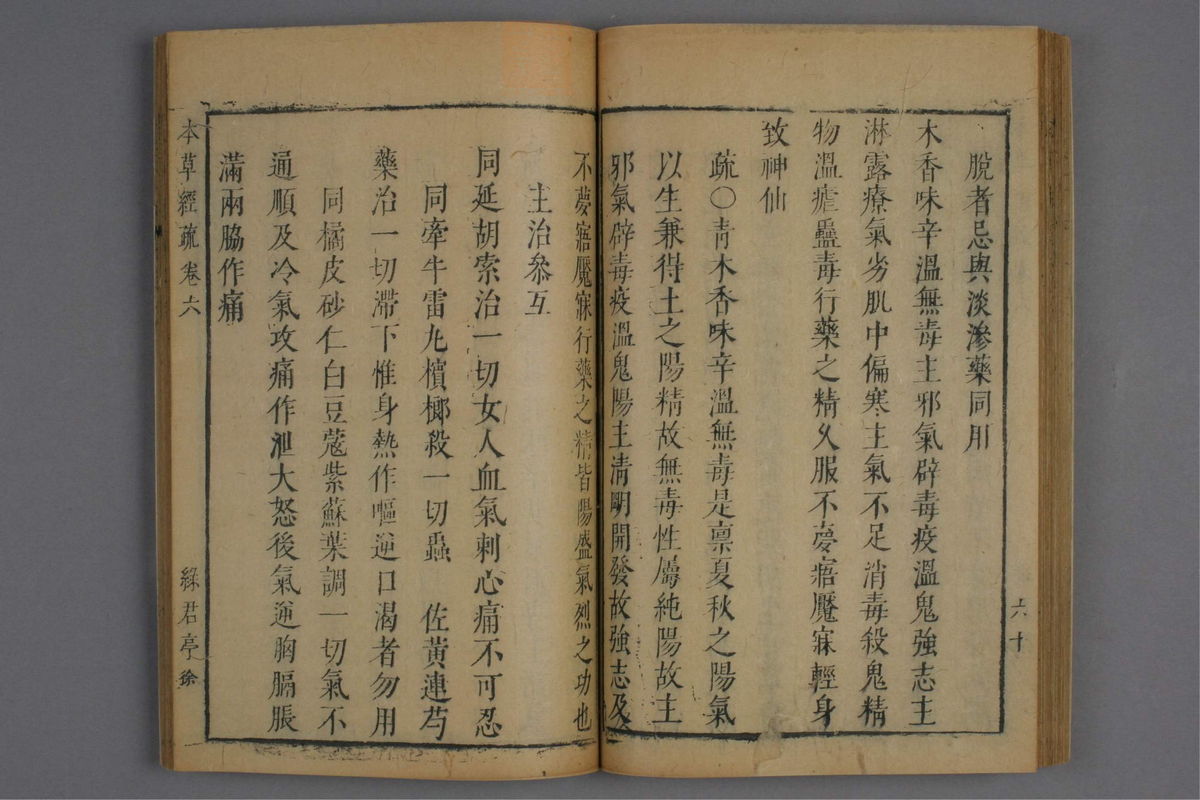 脫者忌與淡滲藥同用
木香味辛溫無毒主邪氣辟毒疫溫鬼強志主
淋露療氣劣肌中偏寒主氣不足消毒殺鬼精
物溫瘧蠱毒行藥之精久服不夢寤魘寐輕身
致神仙
疏○青木香味辛溫無毒是禀夏秋之陽氣
以生兼得土之陽精故無毒性屬純陽故主
邪氣辟毒疫溫鬼陽主清明開發故強志及
六十
不夢寤魘寐行藥之精皆陽盛氣烈之功也
主治叅互
同延胡索治一切女人血氣刺心痛不可忍
同牽牛雷丸檳榔殺一切蟲　佐黃連芍
藥治一切滯下惟身熱作嘔逆口渴者勿用
同橘皮砂仁白豆蔻紫蘇葉調一切氣不
通順及冷氣攻痛作泄大怒後氣逆胸膈脹
滿兩脇作痛
本草經疏卷六
綠君亭 徐